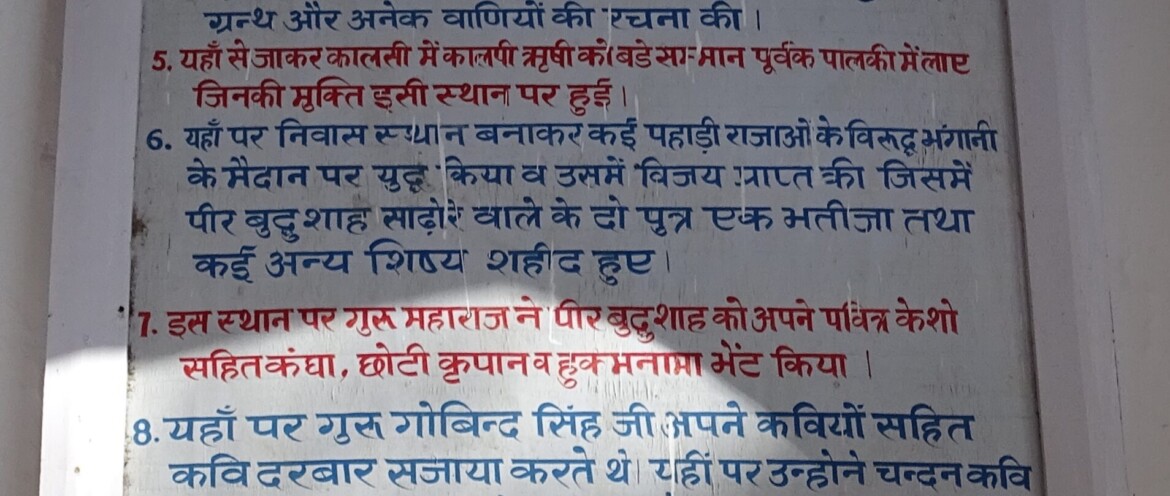 ग्रन्थ और अनेक वाणियों की रचना की।
5. यहाँ से जाकर कालसी में कालपी ऋषी को बडे सम्मान पूर्वक पालकी में लाए
जिनकी मुक्ति इसी स्थान पर हुई।
6. यहाँ पर निवास स्थान बनाकर कई पहाड़ी राजाओं के विरूद्ध भंगानी
के मैदान पर युद्ध किया व उसमें विजय प्राप्त की जिसमें
पीर बुद्धु शाह साढ़ोरे वाले के दो पुत्र एक भतीजा तथा
कई अन्य शिष्य शहीद हुए।
7. इस स्थान पर गुरू महाराज ने पीर बुद्धु शाह को अपने पवित्र केशो
सहित कंघा, छोटी कृपान व हुक्मनामा भेंट किया।
8. यहाँ पर गुरू गोबिन्द सिंह जी अपने कवियों सहित
कवि दरबार सजाया करते थे। यहीं पर उन्होने चन्दन कवि